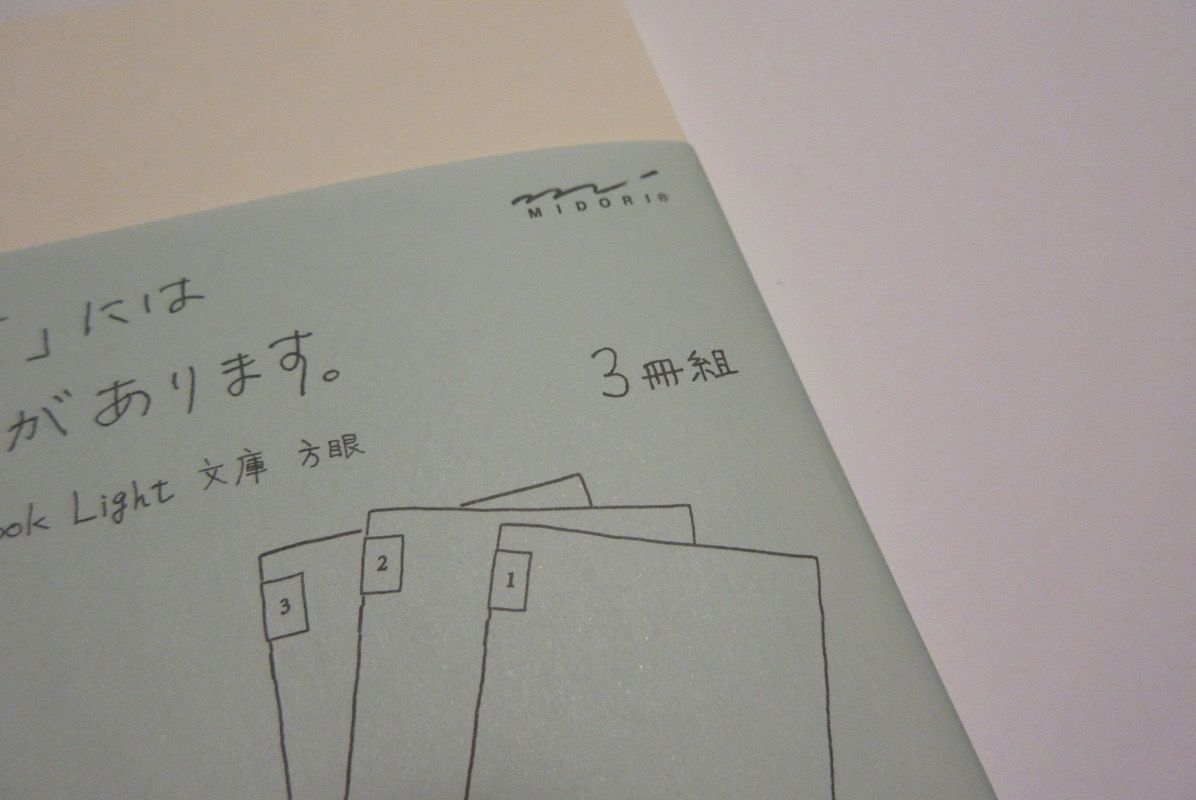 MIDORI®
」には
があります。
3冊組
ook Light 文庫 方眼
3
2
1